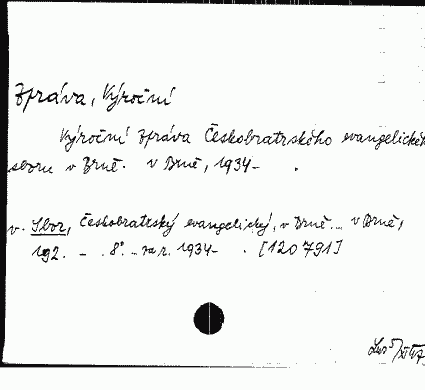 Zpráva, Výroční
Výroční zpráva Českobratrského evangelického
sboru v Brně. V Brně, 1934- .
v. Sbor, Českobratrský evangelický, v Brně... V Brně,
192. - . 8°. ... za r. 1934- . [120791]